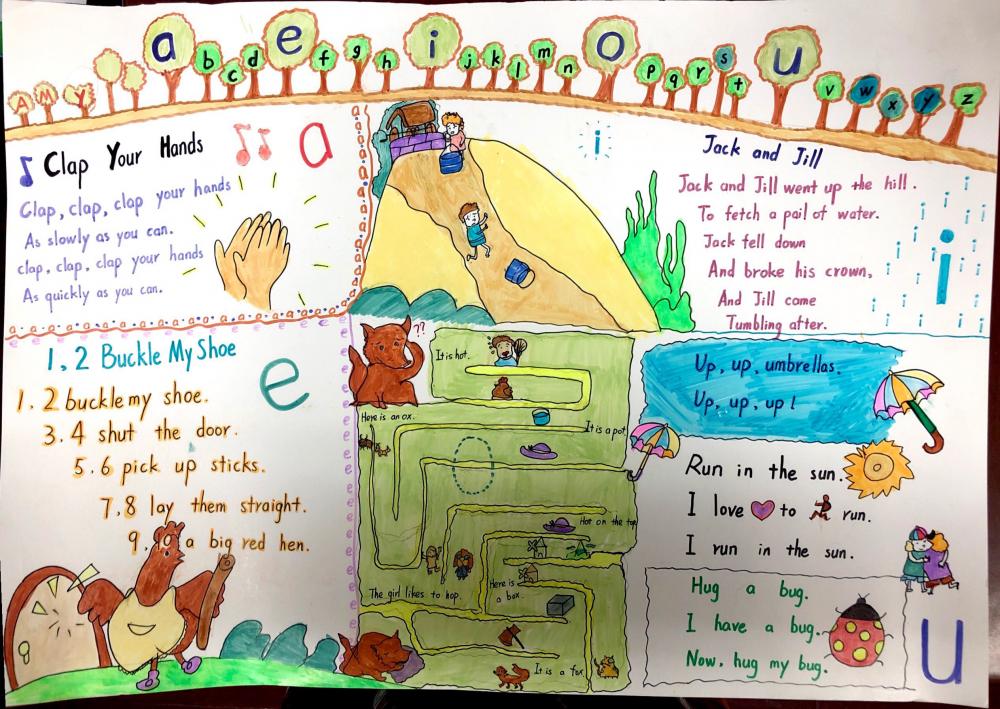 A M Y a b c d e f g h i j k l m n o p q r s t u v w x y z
Clap Your Hands
a
Clap, clap, clap your hands
As slowly as you can.
clap, clap, clap your hands
As quickly as you can.
i
Jack and Jill
Jack and Jill went up the hill.
To fetch a pail of water.
Jack fell down
And broke his crown,
And Jill came
Tumbling after.
i
1, 2 Buckle My Shoe
e
1. 2 buckle my shoe.
3. 4 shut the door.
5. 6 pick up sticks.
7. 8 lay them straight.
9. 10 a big red hen.
??
It is hot.
Here is an ox.
It is a pot
Hot on the top
The girl likes to hop.
Here is
a box.
It is a fox
Up, up, umbrellas.
Up, up, up!
Run in the sun.
I love to run.
I run in the sun.
Hug a bug.
I have a bug.
Now, hug my bug.
u